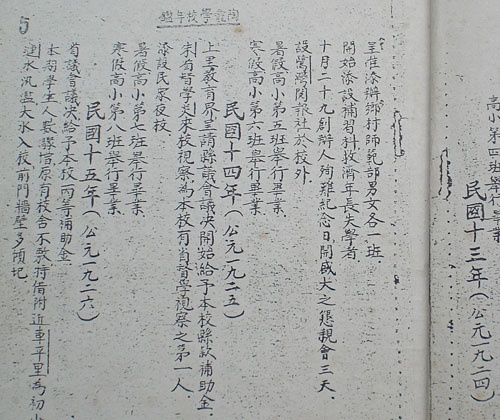 高小第四班舉行畢業
民國十三年(公元一九二四)
5
學校年鑑
呈准添辦鄉村師範部男女各一班.
開始添設補習科救濟年長失學者
十月二十九創辦人殉難紀念日,開盛大之懇親會三天.
設 灣閱報社於校外
暑假高小第五班舉行畢業.
寒假高小第六班舉行畢業.
民國十四年(公元一九二五)
上 教育界呈請縣議會議決開始給予本校縣款補助金.
宋省督學 來校視察為本校有省督學視察之第一人.
添設民眾夜校
暑假高小第七班舉行畢業.
寒假高小第八班舉行畢業.
民國十五年(公元一九二六)
省議會議決給予本校丙等補助金
本期學生人數激增原有校舍不敷特借附近車平里為初小
漣水汎溢大水入校前門牆壁多傾圮